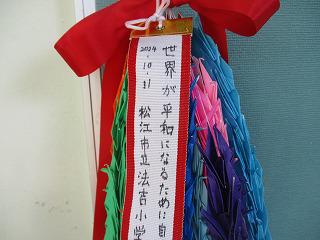 世界が平和になるために自
2024.10.31
松江市立法吉小学